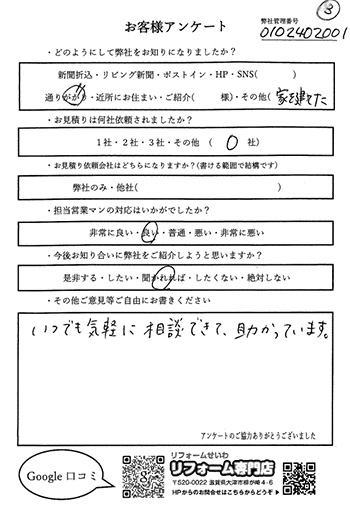 ③
お客様アンケート
弊社管理番号
0102402001
・どのようにして弊社をお知りになりましたか?
新聞折込・リビング新聞・ポストイン・HP・SNS( )
通りがかり・近所にお住まい・ご紹介( 様)・その他( 家を建てた
・お見積りは何社依頼されましたか?
1社・2社・3社・その他 ( 0 社)
・お見積り依頼会社はどちらになりますか?(書ける範囲で結構です)
弊社のみ・他社( )
・担当営業マンの対応はいかがでしたか?
非常に良い・良い・普通・悪い・非常に悪い
・今後お知り合いに弊社をご紹介しようと思いますか?
是非する・したい・聞かれれば・したくない・絶対しない
・その他ご意見等ご自由にお書きください
いつでも気軽に相談できて、助かっています。
アンケートのご協力ありがとうございました
Google 口コミ
リフォームせいわ
リフォーム専門店
〒520-0022 滋賀県大津市柳が崎4-6
HPからのお問合せはこちらからどうぞ